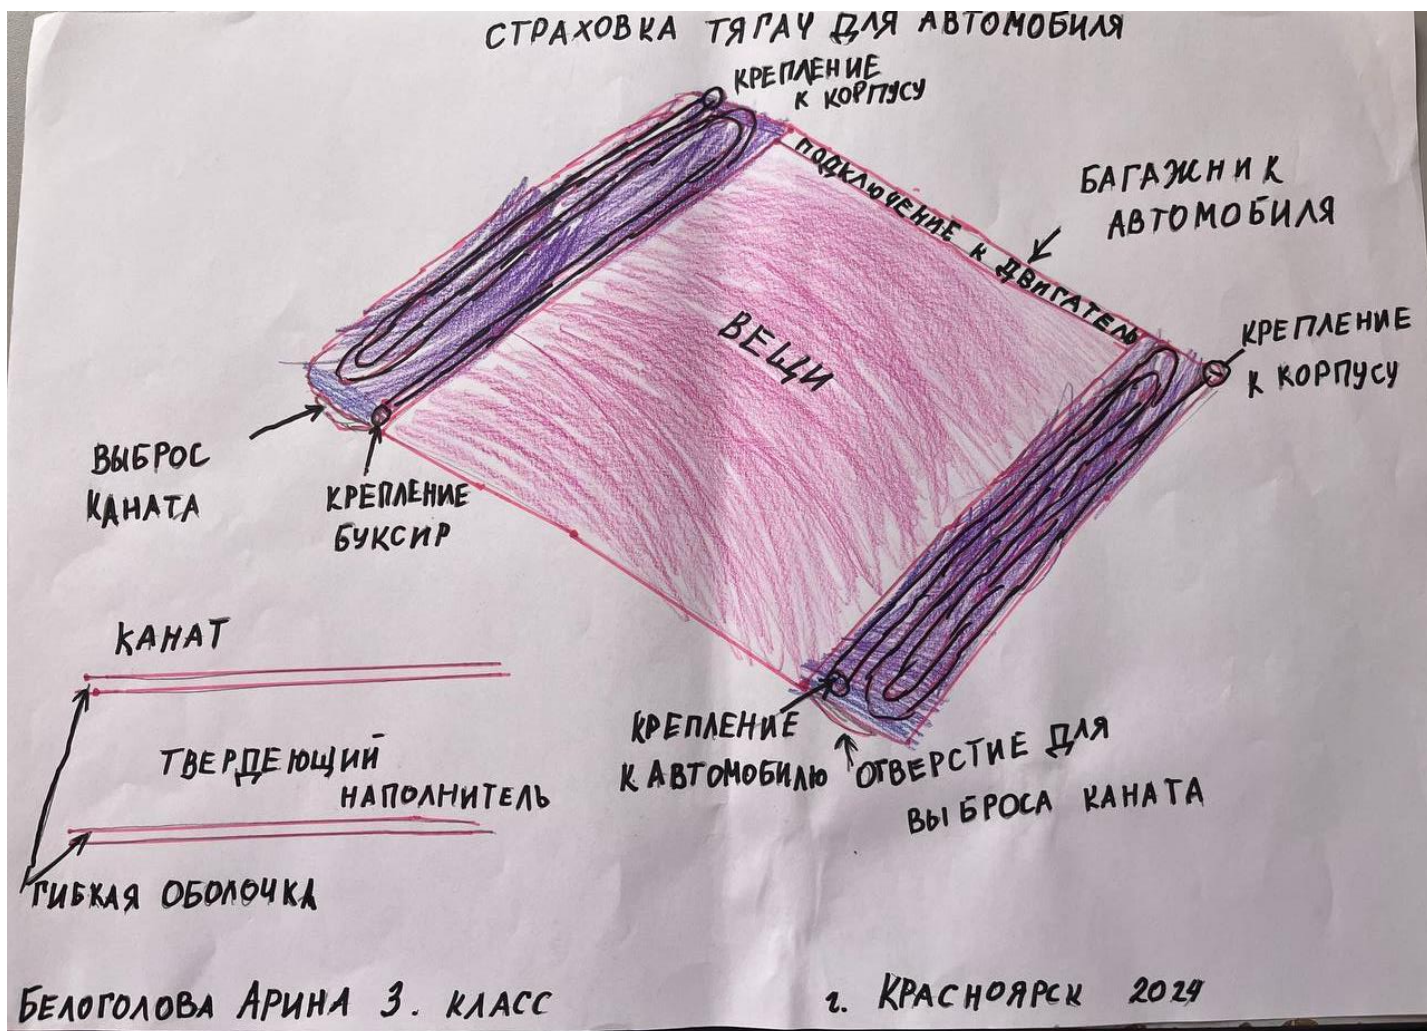 СТРАХОВКА ТЯГАЧ ДЛЯ АВТОМОБИЛЯ
КРЕПЛЕНИЕ
К КОРПУСУ
ПОДКЛЮЧЕНИЕ К ДВИГАТЕЛЬ
БАГАЖНИК
АВТОМОБИЛЯ
ВЕЩИ
КРЕПЛЕНИЕ
К КОРПУСУ
ВЫБРОС
КАНАТА
КРЕПЛЕНИЕ
БУКСИР
КАНАТ
ТВЕРДЕЮЩИЙ
НАПОЛНИТЕЛЬ
ГИБКАЯ ОБОЛОЧКА
КРЕПЛЕНИЕ
К АВТОМОБИЛЮ
ОТВЕРСТИЕ ДЛЯ
ВЫБРОСА КАНАТА
БЕЛОГОЛОВА АРИНА 3. КЛАСС
г. КРАСНОЯРСК 2024